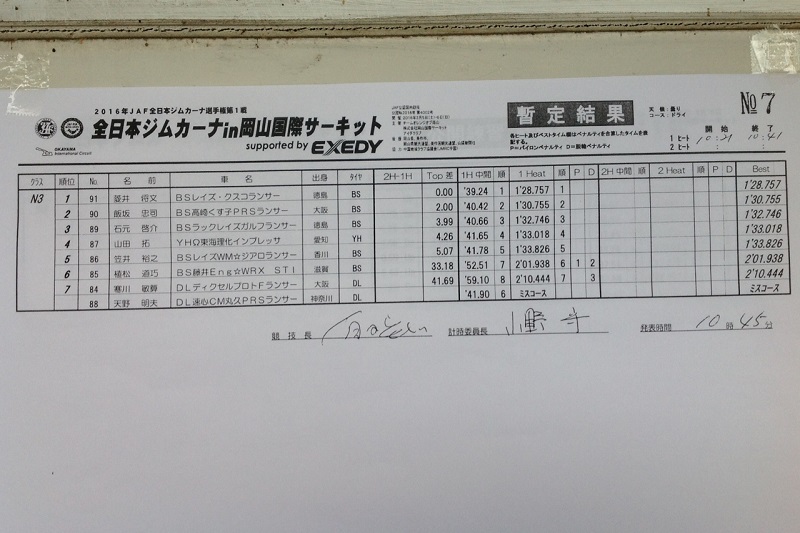 2016年JAF全日本ジムカーナ選手権第1戦
全日本ジムカーナin岡山国際サーキット
supported by EXEDY
OKAYAMA
International Circuit
暫定結果
各ヒート及びベストタイム順はペナルティを合算したタイムを表
記する。
P=パイロンペナルティ D=脱輪ペナルティ
天候:曇り
コース:ドライ
No 7
開始 終了
1ヒート 10:21 10:41
2ヒート : :
クラス 順位 No. 名前 車名 出身 タイヤ 2H-1H Top差 1H中間 順 1 Heat 順 P D 2H中間 順 2 Heat 順 P D Best
N3 1 91 菱井 将文 BSレイズ・クスコランサー 徳島 BS 0.00 '39.24 1 1'28.757 1 1'28.757
2 90 飯坂 忠司 BS高崎くす子PRSランサー 大阪 BS 2.00 '40.42 2 1'30.755 2 1'30.755
3 89 石元 啓介 BSラックレイズガルフランサー 徳島 BS 3.99 '40.66 3 1'32.746 3 1'32.746
4 87 山田 拓 YHΩ東海理化インプレッサ 愛知 YH 4.26 '41.65 4 1'33.018 4 1'33.018
5 86 笠井 裕之 BSレイズWM☆ジアロランサー 香川 BS 5.07 '41.78 5 1'33.826 5 1'33.826
6 85 植松 道巧 BS藤井Eng☆WRX STI 滋賀 BS 33.18 '52.51 7 2'01.938 6 1 2 2'01.938
7 84 寒川 敏賢 DLディクセルプロトFランサー 大阪 DL 41.69 '59.10 8 2'10.444 7 3 2'10.444
88 天野 明夫 DL速心CM丸久PRSランサー 神奈川 DL '41.90 6 ミスコース ミスコース
競技長 計時委員長 発表時間 10時45分